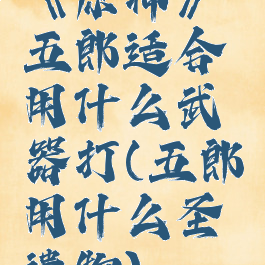 《原神》
五郎适合
用什么武
器打(五郎
用什么圣
遗物)